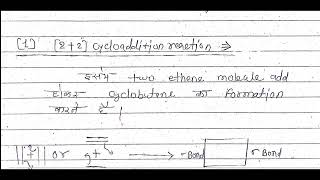 [1] [2+2] cycloaddition reaction ⇒
इसमे two ethene molecule add
होकर cyclobutene का formation
करते है |
|| + || or = + = ⟶ σ Bond σ Bond